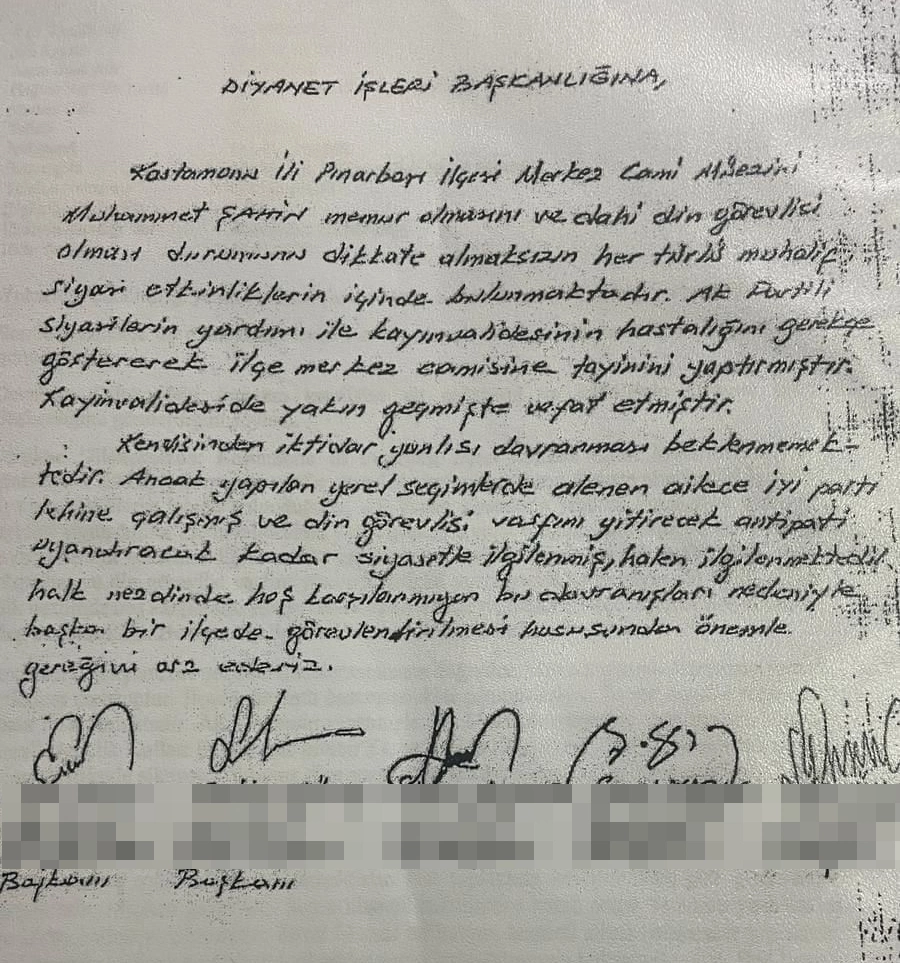 DİYANET İŞLERİ BAŞKANLIĞINA,
Kastamonu İli Pınarbaşı ilçesi Merkez Cami Müezini
Muhammet ŞAHİN memur olmasını ve dahi din görevlisi
olması durumunu dikkate almaksızın her türlü muhalif
siyasi etkinliklerin içinde bulunmaktadır. Ak Partili
siyasilerin yardımı ile kayınvalidesinin hastalığını gerekçe
göstererek ilçe merkez camisine tayinini yaptırmıştır.
Kayınvalideside yakın geçmişte vefat etmiştir.
Kendisinden iktidar yanlısı davranması beklenmemek-
tedir. Ancak yapılan yerel seçimlerde alenen ailece iyi parti
lehine çalışmış ve din görevlisi vasfını yitirecek antipati
uyandıracak kadar siyasetle ilgilenmiş, halen ilgilenmektedir.
halk nezdinde hoş karşılanmıyan bu davranışları nedeniyle
başka bir ilçede görevlendirilmesi hususundan önemle
gereğini arz ederiz.
Başkanı Başkanı